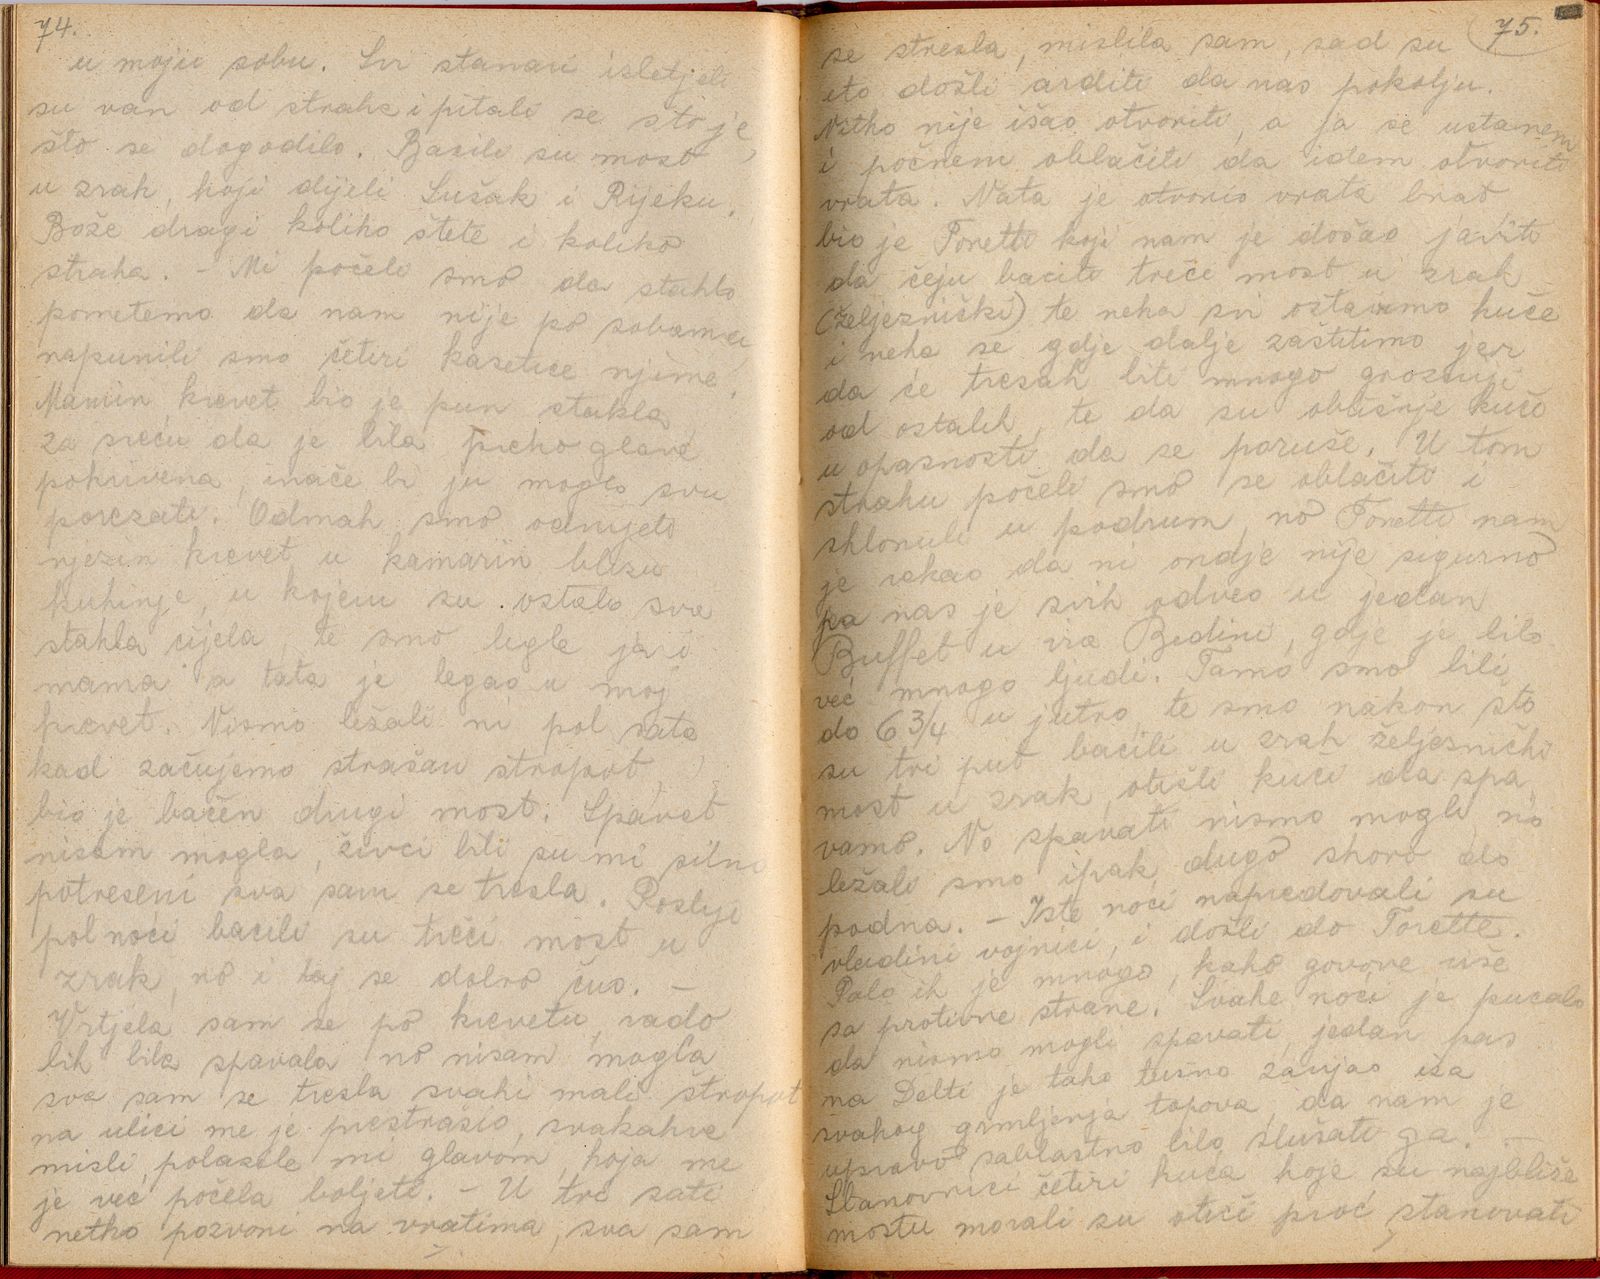 74.
u moju sobu. Svi stanari izletjeli
su van od straha i pitali se što je,
što se dogodilo. Bacili su most
u zrak, koji dijeli Sušak i Rijeku.
Bože dragi koliko štete i koliko
straha. – Mi počeli smo da stakla
pometemo da nam nije po sobama i
napunili smo četiri kasetice njime.
Mamin krevet bio je pun stakla,
za sreću da je bila preko glave
pokrivena, inače bi ju moglo svu
porezati. Odmah smo odnijeli
njezin krevet u kamarin blizu
kuhinje, u kojem su ostala sva
stakla cijela, te smo legle ja i
mama a tata je legao u moj
krevet. Nismo ležali ni pol sata
kad začujemo strašan štropot,
bio je bačen drugi most. Spavat
nisam mogla, živci bili su mi silno
potreseni sva sam se tresla. Poslije
pol noći bacili su treći most u
zrak, no i taj se dobro čuo. –
Vrtjela sam se po krevetu, rado
bih bila spavala no nisam mogla
sva sam se tresla svaki mali štropot
na ulici me je prestrašio, svakakve
misli polazile mi glavom, koja me
je već počela boljeti. – U tri sati
netko pozvoni na vratima, sva sam
75.
se stresla, mislila sam, sad su
eto došli arditi da nas pokolju.
Nitko nije išao otvoriti, a ja se ustanem
i počnem oblačiti da idem otvoriti
vrata. Nata je otvorio vrata brat
bio je Tonetti koji nam je došao javiti
da čeju baciti treći most u zrak
(željeznički) te neka svi ostavimo kuće
i neka se gdje dalje zaštitimo jer
da će tresak biti mnogo grozniji
od ostalih, te da su obližnje kuće
u opasnosti da se poruše. U tom
strahu počeli smo se oblačiti i
sklonuli u podrum, no Tonetti nam
je rekao da ni ondje nije sigurno
pa nas je svih odveo u jedan
Buffet u via Bedini, gdje je bilo
već mnogo ljudi. Tamo smo bili
do 6 3/4 u jutro, te smo nakon što
su tri put bacili u zrak željeznički
most u zrak, otišli kući da spa
vamo. No spavati nismo mogli, no
ležali smo ipak dugo skoro do
podna. – Iste noći napredovali su
vladini vojnici, i došli do Torette.
Palo ih je mnogo, kako govore više
sa protivne strane. Svake noći je pucalo
da nismo mogli spavati, jedan pas
na Delti je tako tužno zavijao iza
svakog grmljenja topova, da nam je
upravo sablastno bilo slušati ga. –
Stanovnici četiri kuća koje su najbliže
mostu morali su otići proć, stanovati